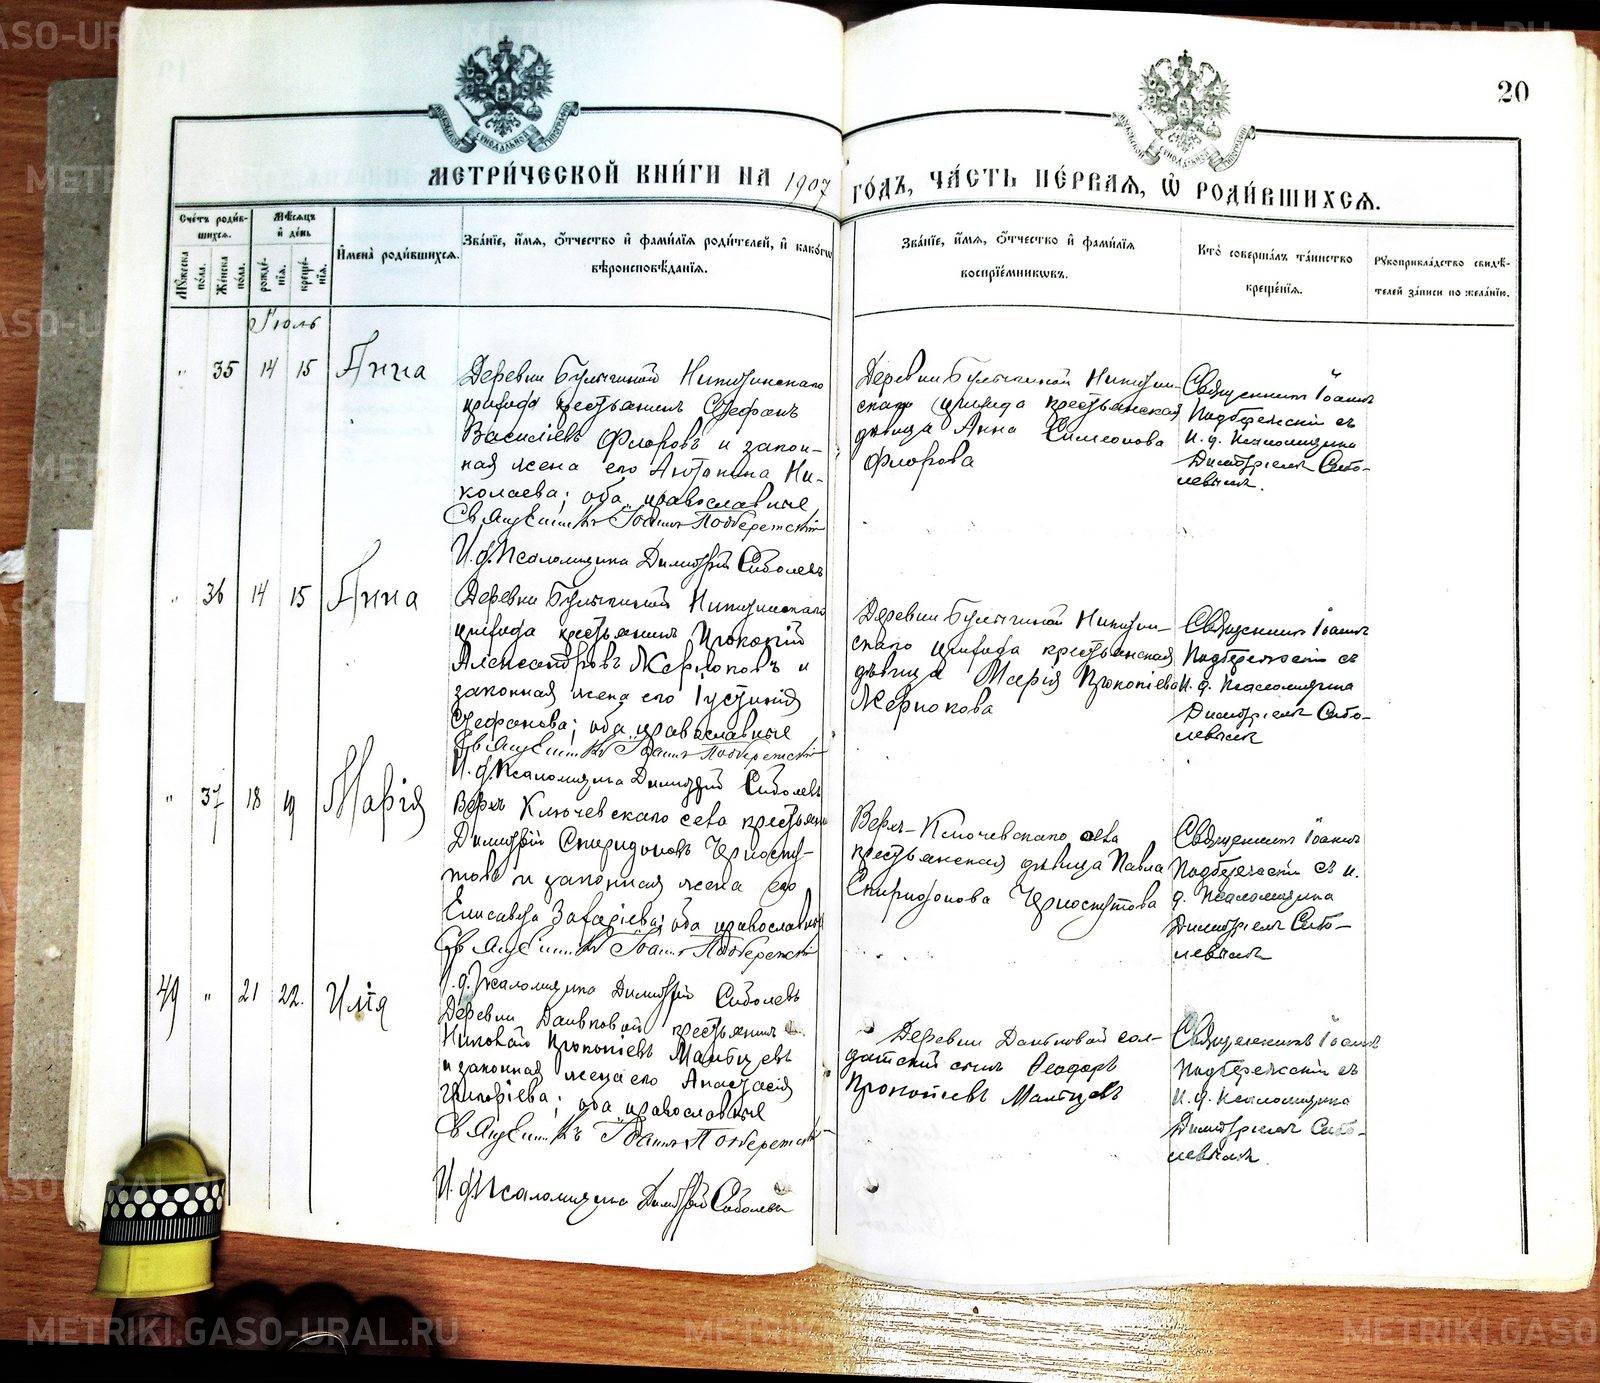 20
МЕТРИ́ЧЕСКОЙ КНИ́ГИ НА 1907 ГО́ДЪ, ЧА́СТЬ ПЕ́РВАѦ, Ѡ҆ РОДИ́ВШИХСѦ.
Сче́тъ роди́в-
шихсѧ.
Мꙋ́жеска по́ла.
Же́нска по́ла.
Мѣ́сѧцъ и҆ де́нь
рожде́-
нїѧ.
креще́-
нїѧ.
И҆мена̀ роди́вшихсѧ.
Зва́нїе, и҆́мѧ, ѻ҆́тчество и҆ фами́лїѧ роди́телей, и҆ како́гѡ
вѣроисповѣ́данїѧ.
Зва́нїе, и҆́мѧ, ѻ҆́тчество и҆ фами́лїѧ
воспрїе́мникѡвъ.
Кто̀ соверша́лъ та́инство
креще́нїѧ.
Рꙋкоприкла́дство свидѣ́-
телей за́писи по жела́нїю.
Іюль
" 35 14 15 Анна
Деревни Булыгиной Никитинскаго
прихода крестьянинъ Стефанъ
Василіевъ Флоровъ и закон-
ная жена его Антонина Ни-
колаева; оба православные
Священникъ Іоаннъ Подбережскій
И. д. Псаломщика Димитрій Соболевъ
Деревни Булыгиной Никитин-
скаго прихода крестьянская
дѣвица Анна Симеонова
Флорова
Священникъ Іоаннъ
Подбережскій съ
и. д. Псаломщика
Димитріемъ Собо-
левымъ.
" 36 14 15 Анна
Деревни Булыгиной Никитинскаго
прихода крестьянинъ Прокопій
Александровъ Жернаковъ и
законная жена его Іустинія
Стефанова; оба православные
Священникъ Іоаннъ Подбережскій
И. д. Псаломщика Димитрій Соболевъ
Деревни Булыгиной Никитин-
скаго прихода крестьянская
дѣвица Марія Прокопіева
Жернокова
Священникъ Іоаннъ
Подбережскій съ
и. д. Псаломщика
Димитріемъ Собо-
левымъ
" 37 18 19 Марія
Верхъ Ключевскаго села крестьян
Димитрій Спиридоновъ Черноску-
товъ и законная жена его
Елисавета Захаріева; оба православные
Священникъ Іоаннъ Подбережскій
И. д. Псаломщика Димитрій Соболевъ
Верхъ-Ключевскаго села
крестьянская дѣвица Павла
Спиридонова Черноскутова
Священникъ Іоаннъ
Подбережскій съ и.
д. Псаломщика
Димитріемъ Собо-
левымъ
49 " 21 22. Илія
Деревни Даньковой крестьянинъ
Николай Прокопіевъ Мальцевъ
и законная жена его Анастасія
Григоріева; оба православные
Священникъ Іоаннъ Подбережскій
И. д. Псаломщика Димитрій Соболевъ
Деревни Даньковой сол-
датскій сынъ Ѳеодоръ
Прокопіевъ Мальцевъ
Священникъ Іоаннъ
Подбережскій съ
и. д. Псаломщика
Димитріемъ Собо-
левымъ
METRIKI.GASO-URAL.RU